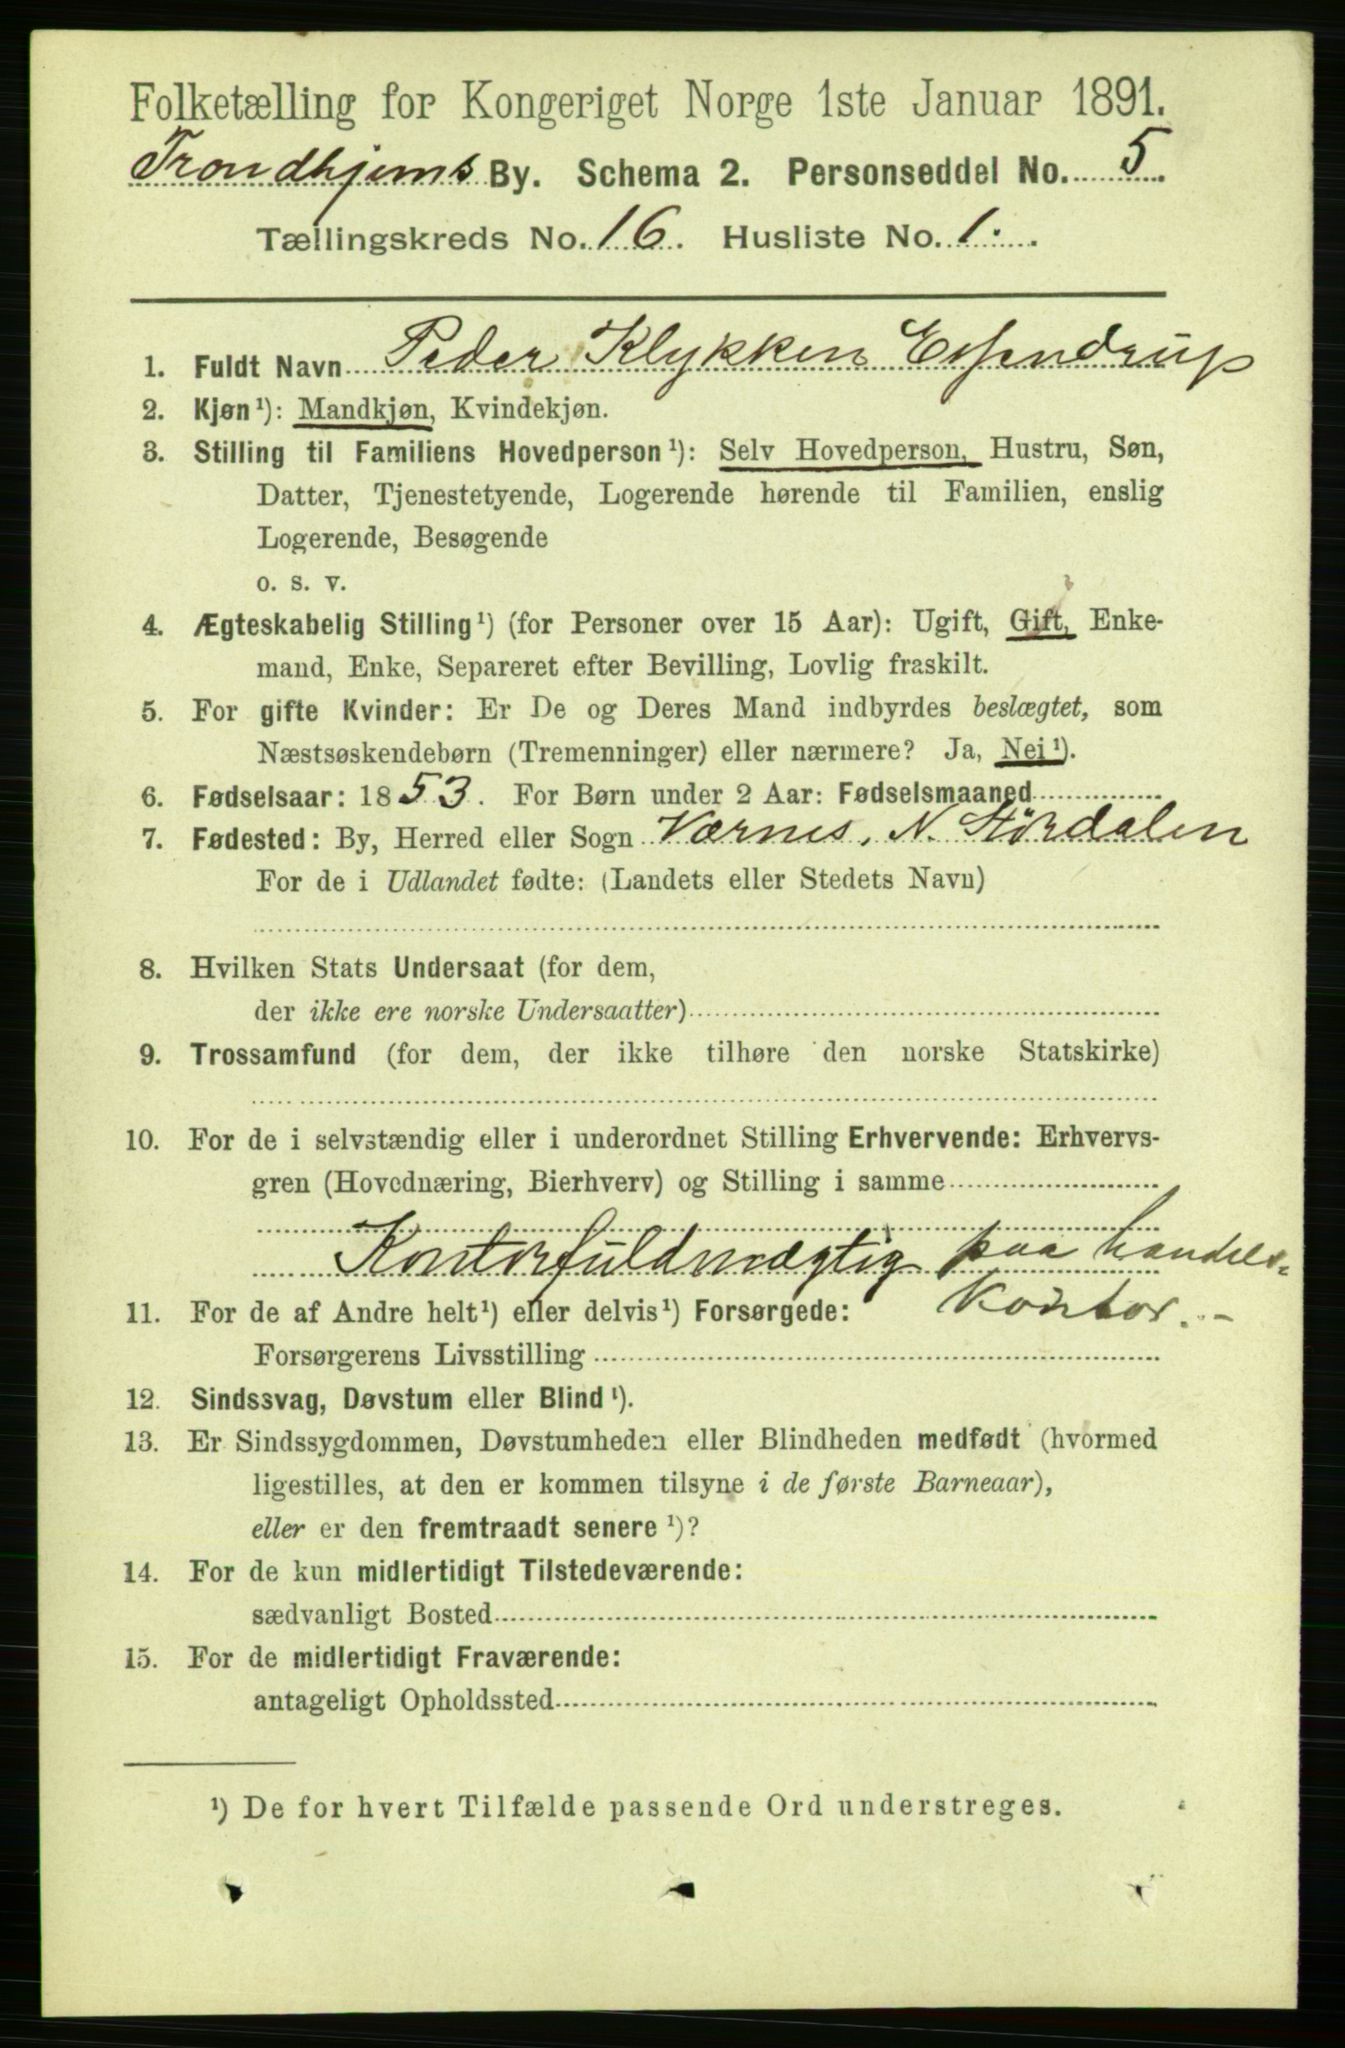 Folketælling for Kongeriget Norge 1ste Januar 1891.
Trondhjems By. Schema 2. Personseddel No. 5.
Tællingskreds No. 16. Husliste No. 1.
1. Fuldt Navn Peder Klykken Essendrup
2. Kjøn¹): Mandkjøn, Kvindekjøn.
3. Stilling til Familiens Hovedperson¹): Selv Hovedperson, Hustru, Søn,
Datter, Tjenestetyende, Logerende hørende til Familien, enslig
Logerende, Besøgende
o. s. v.
4. Ægteskabelig Stilling¹) (for Personer over 15 Aar): Ugift, Gift, Enke-
mand, Enke, Separeret efter Bevilling, Lovlig fraskilt.
5. For gifte Kvinder: Er De og Deres Mand indbyrdes beslægtet, som
Næstsøskendebørn (Tremenninger) eller nærmere? Ja, Nei¹).
6. Fødselsaar: 1853. For Børn under 2 Aar: Fødselsmaaned
7. Fødested: By, Herred eller Sogn Værnes, N. Stördalen
For de i Udlandet fødte: (Landets eller Stedets Navn)
8. Hvilken Stats Undersaat (for dem,
der ikke ere norske Undersaatter)
9. Trossamfund (for dem, der ikke tilhøre den norske Statskirke)
10. For de i selvstændig eller i underordnet Stilling Erhvervende: Erhvervs-
gren (Hovednæring, Bierhverv) og Stilling i samme
Kontorfuldmægtig paa handels-
kontor.-
11. For de af Andre helt¹) eller delvis¹) Forsørgede:
Forsørgerens Livsstilling
12. Sindssvag, Døvstum eller Blind¹).
13. Er Sindssygdommen, Døvstumheden eller Blindheden medfødt (hvormed
ligestilles, at den er kommen tilsyne i de første Barneaar),
eller er den fremtraadt senere¹)?
14. For de kun midlertidigt Tilstedeværende:
sædvanligt Bosted
15. For de midlertidigt Fraværende:
antageligt Opholdssted
¹) De for hvert Tilfælde passende Ord understreges.